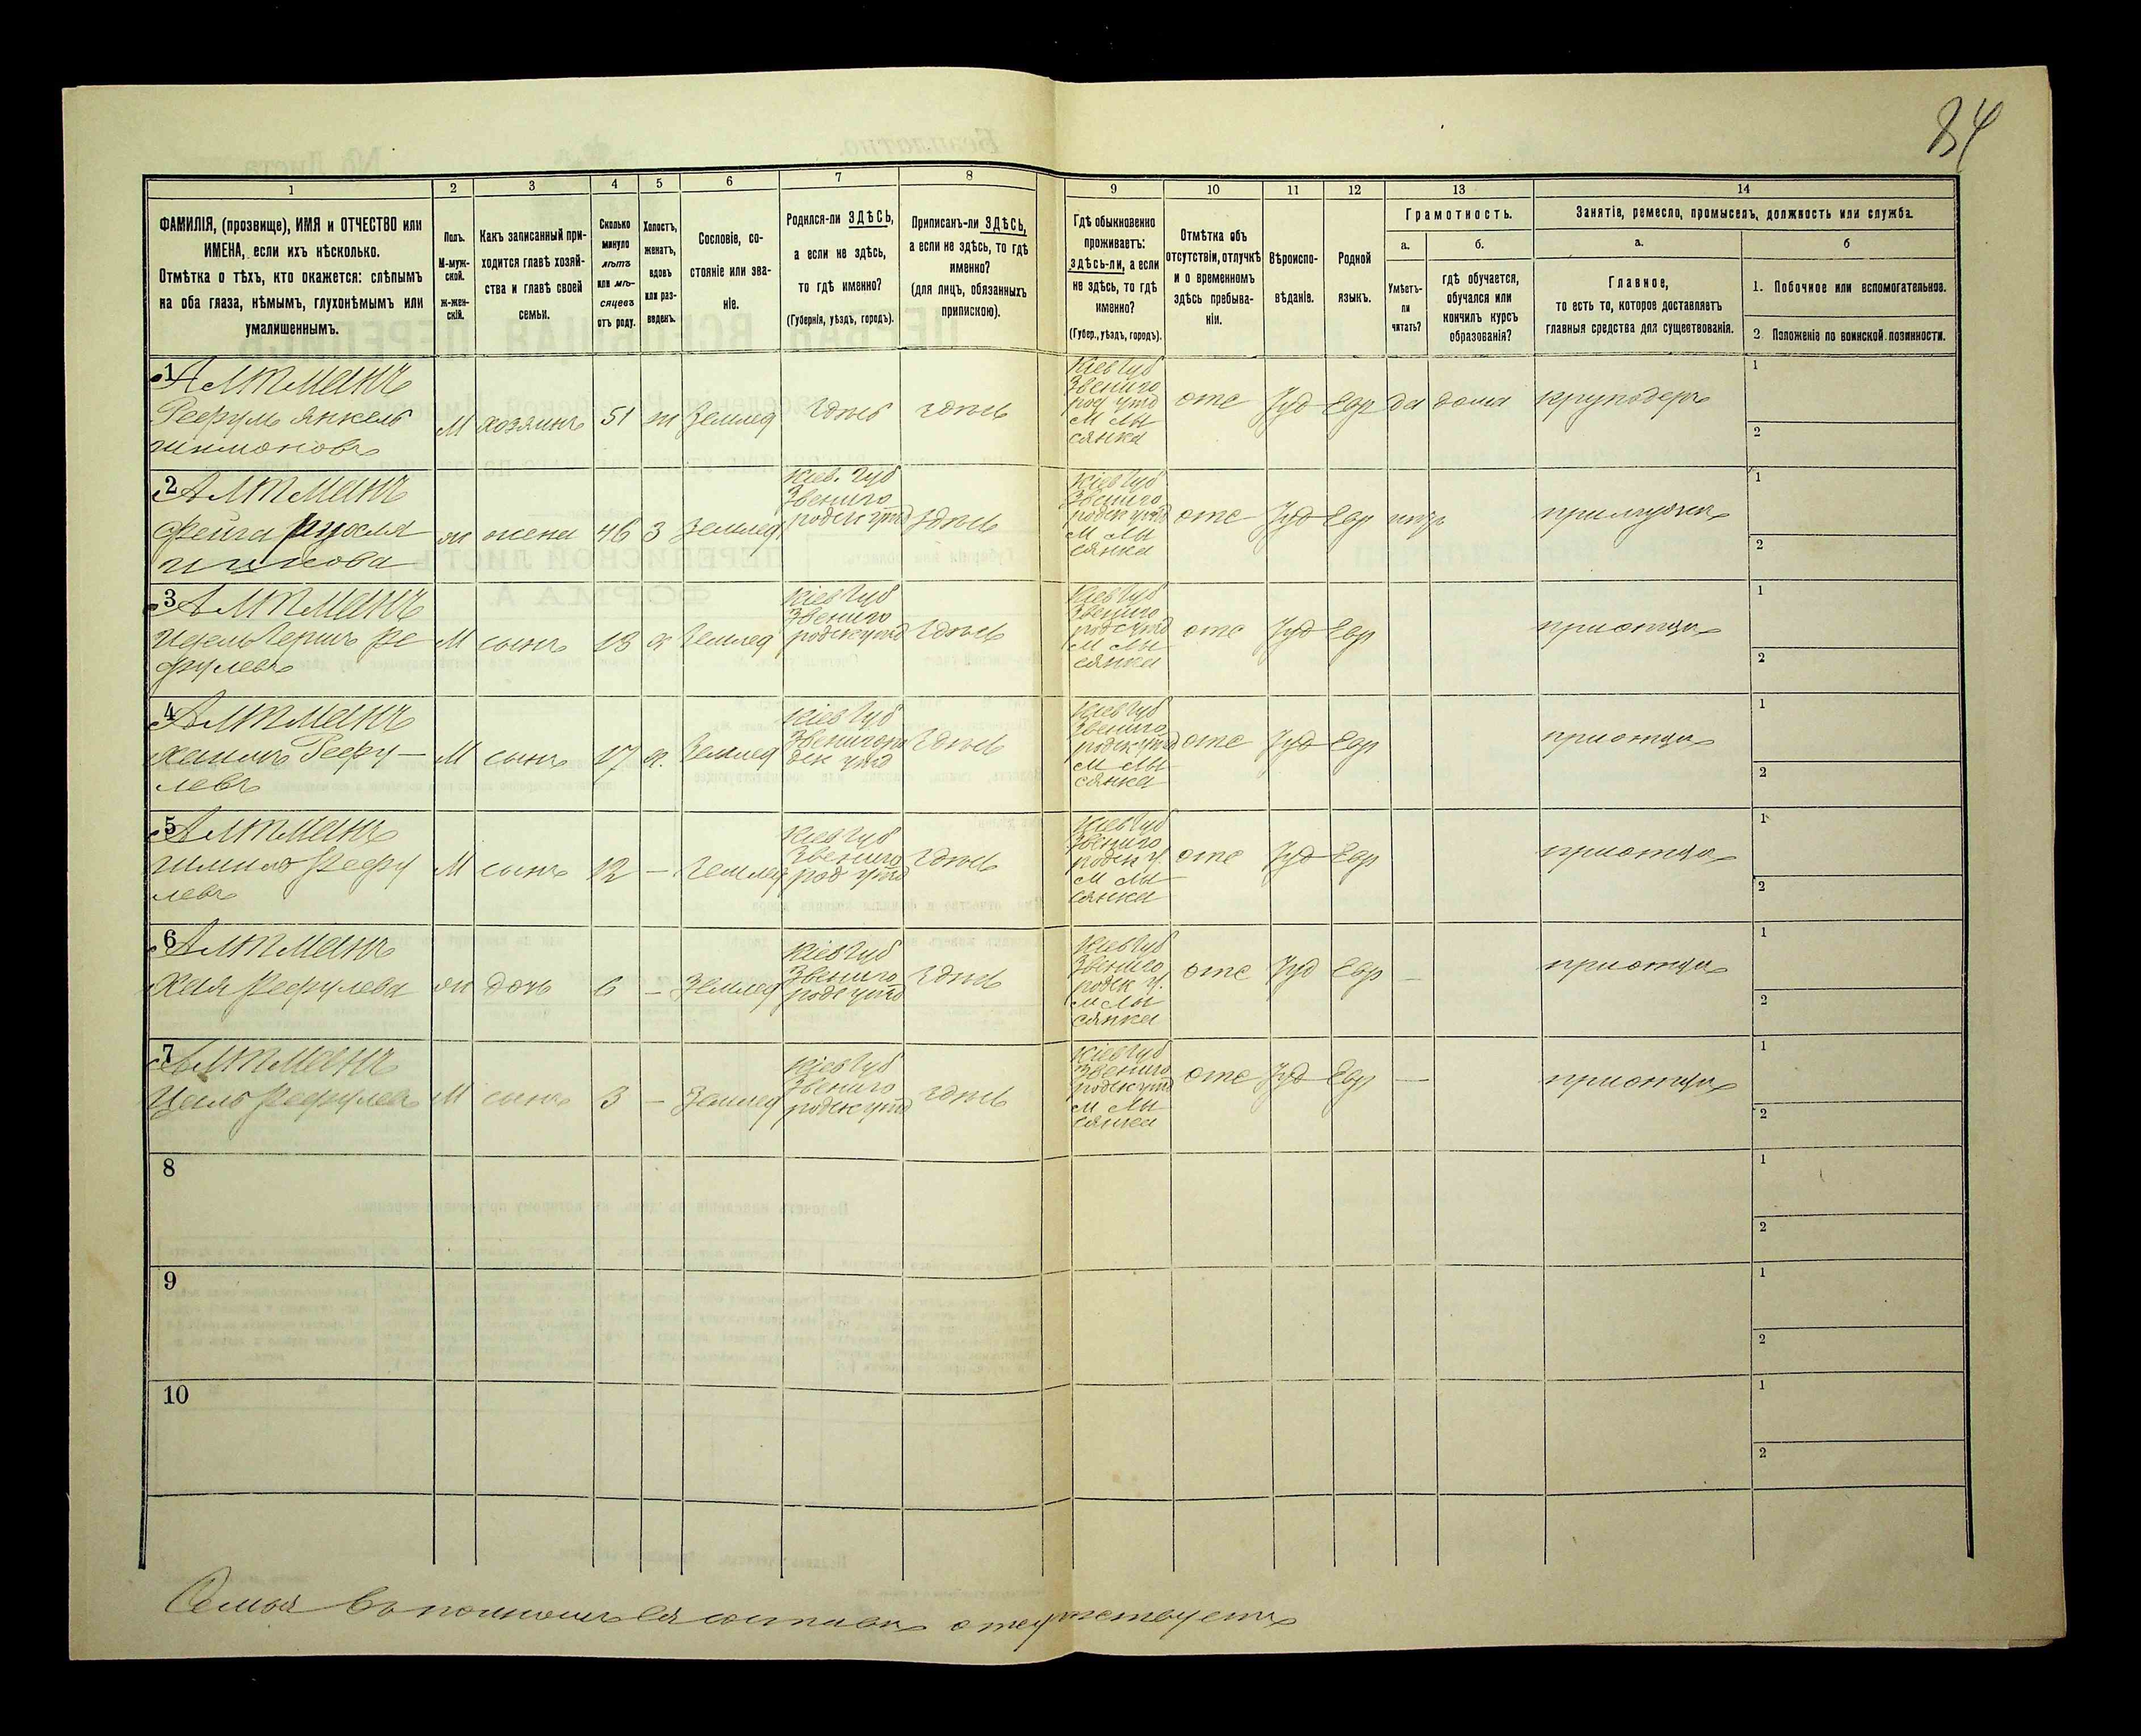 84
1
2
3
4
5
6
7
8
9
10
11
12
13
14
ФАМИЛІЯ, (прозвище), ИМЯ и ОТЧЕСТВО или
ИМЕНА, если ихъ нѣсколько.
Отмѣтка о тѣхъ, кто окажется: слѣпымъ
на оба глаза, нѣмымъ, глухонѣмымъ или
умалишеннымъ.
Полъ.
М-муж-
ской.
Ж-жен-
скій.
Какъ записанный при-
ходится главѣ хозяй-
ства и главѣ своей
семьи.
Сколько
минуло
лѣтъ
или мѣ-
сяцевъ
отъ роду.
Холостъ,
женатъ,
вдовъ
или раз-
веденъ.
Сословіе, со-
стояніе или зва-
ніе.
Родился-ли ЗДѢСЬ,
а если не здѣсь,
то гдѣ именно?
(Губернія, уѣздъ, городъ).
Приписанъ-ли ЗДѢСЬ,
а если не здѣсь, то гдѣ
именно?
(для лицъ, обязанныхъ
припискою).
Гдѣ обыкновенно
проживаетъ:
здѣсь-ли, а если
не здѣсь, то гдѣ
именно?
(Губер., уѣздъ, городъ).
Отмѣтка объ
отсутствіи, отлучкѣ
и о временномъ
здѣсь пребыва-
ніи.
Вѣроиспо-
вѣданіе.
Родной
языкъ.
Грамотность.
а.
Умѣетъ-
ли
читать?
б.
гдѣ обучается,
обучался или
кончилъ курсъ
образованія?
Занятіе, ремесло, промыселъ, должность или служба.
а.
Главное,
то есть то, которое доставляетъ
главныя средства для существованія.
б
1. Побочное или вспомогательное.
2. Положеніе по воинской повинности.
1 Алтманъ
Рефулъ Янкель
Шимоновъ
М хозяинъ 51 ж Землед Здѣсь здѣсь
Кіев Губ
Звениго
род уѣзд
М Лы
сянка
отс Іуд Евр да дома круподеръ
1
2
2 Алтманъ
Фейга Рухля
ж жена 46 З Землед
Кіев. Губ
Звениго
родск уѣзд
Здѣсь
Кіев Губ
Звениго
родск уѣзд
М Лы
сянка
отс Іуд Евр нѣтъ при мужѣ
1
2
3 Алтманъ
Идель Гершъ Ре
фулевъ
М сынъ 18 х Землед
Кіев Губ
Звениго
родск уѣзд
Здѣсь
Кіев Губ
Звениго
родс уѣзд
М Лы
сянка
отс Іуд Евр при отцѣ
1
2
4 Алтманъ
Хаимъ Рефу-
левъ
М сынъ 17 х. Землед
Кіев Губ
Звениго
дск уѣзд
Здѣсь
Кіев Губ
Звениго
родск уѣзд
М Лы
сянка
отс Іуд Евр при отцѣ
1
2
5 Алтманъ
Шмило Рефу
левъ
М сынъ 12 – Землед
Кіев Губ
Звениго
род уѣзд
Здѣсь
Кіев Губ
Звениго
родск у.
М Лы
сянка
отс Іуд Евр при отцѣ
1
2
6 Алтманъ
Хая Рефулева
ж дочь 6 – Землед
Кіев Губ
Звениго
родс уѣзд
Здѣсь
Кіев Губ
Звениго
родск у.
М Лы
сянка
отс Іуд Евр – при отцѣ
1
2
7 Алтманъ
Рефулевъ
М сынъ 3 – Землед
Кіев Губ
Звениго
родск уѣзд
здѣсь
Кіев Губ
Звениго
родск уѣзд
М Лы
сянка
отс Іуд Евр – при отцѣ
1
2
8
1
2
9
1
2
10
1
2
Семья въ полномъ ея составѣ отсутствуетъ